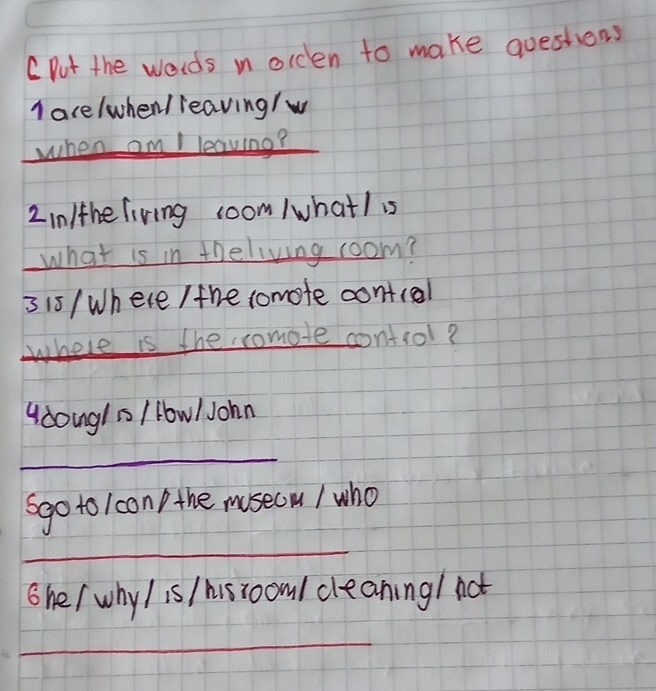 C Put the words in orden to make questions
1 are/when/leaving/w
when am I leaving?
2 in/the living room/what/is
what is in the living room?
3 is/Where/the romote control
where is the romote control?
4 doing/is/How/John
5 go to/can/the museom/who
6 he/why/is/his room/cleaning/not